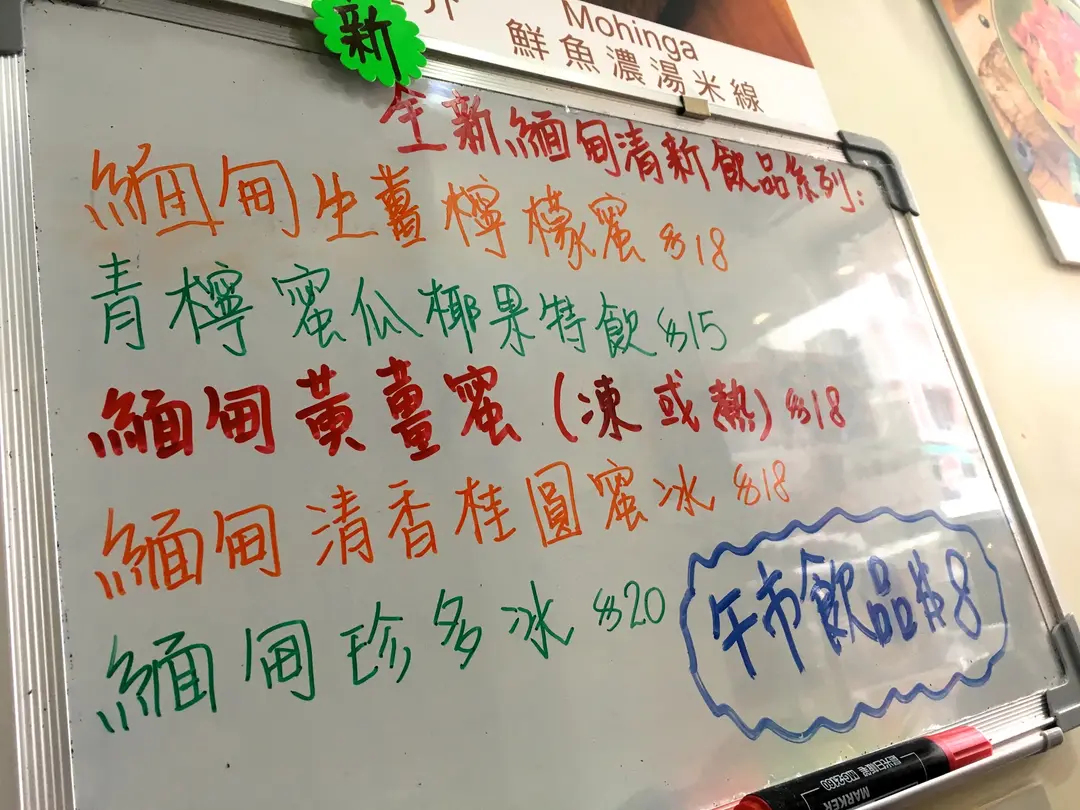 新
Mohinga
鮮魚濃湯米線
全新緬甸清新飲品系列:
緬甸生薑檸檬蜜 $18
青檸蜜瓜椰果特飲 $15
緬甸黃薑蜜 (凍或熱) $18
緬甸清香桂圓蜜冰 $18
緬甸珍多冰 $20
午市飲品 $8
MARKER